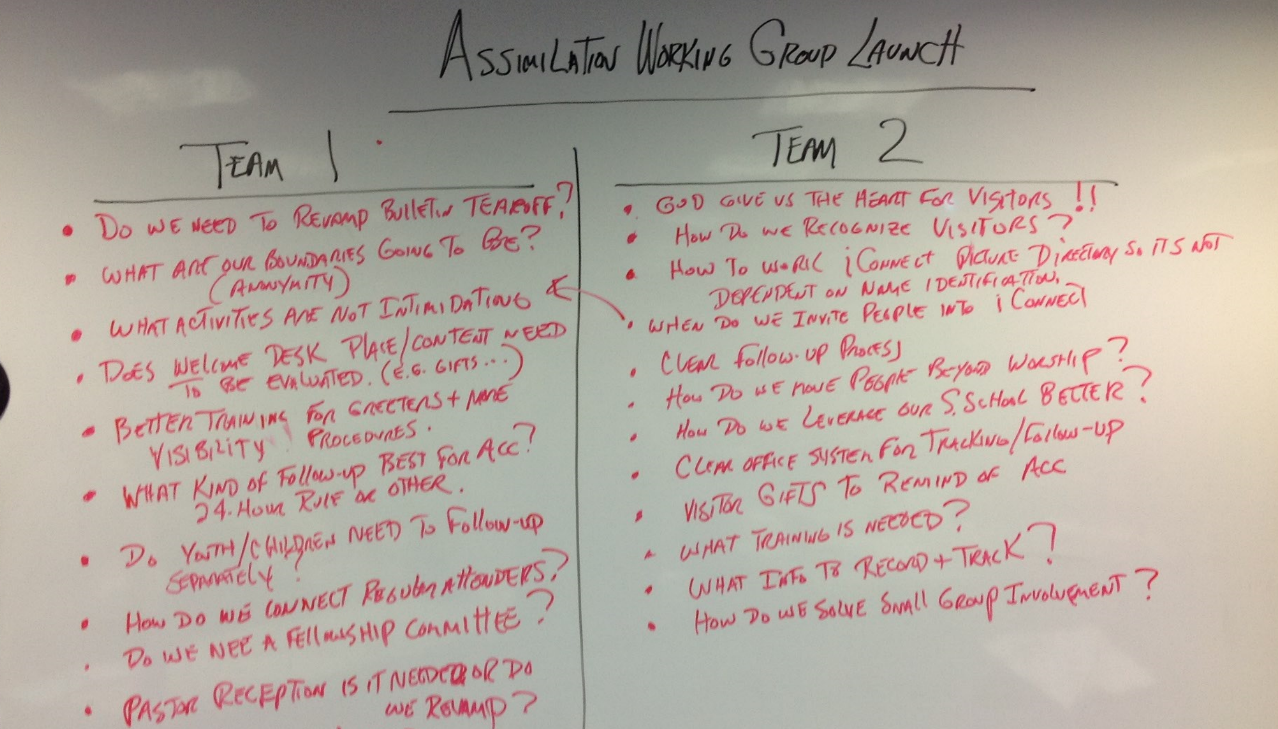 ASSIMILATION WORKING GROUP LAUNCH
TEAM 1
• DO WE NEED TO REVAMP BULLETIN TEAROFF?
• WHAT ARE OUR BOUNDARIES GOING TO BE?
(ANNYMITY)
• WHAT ACTIVITIES ARE NOT INTIMIDATING
• DOES WELCOME DESK PLACE/CONTENT NEED
TO BE EVALUATED. (E.G. GIFTS...)
• BETTER TRAINING FOR GREETERS + MORE
VISIBILITY PROCEDURES.
• WHAT KIND OF FOLLOW-UP BEST FOR ACC?
24-HOUR RULE OR OTHER.
• DO YOUTH/CHILDREN NEED TO FOLLOW-UP
SEPARATELY?
• HOW DO WE CONNECT REGULAR ATTENDERS?
• DO WE NEE A FELLOWSHIP COMMITTEE?
• PASTOR RECEPTION IS IT NEEDED OR DO
WE REVAMP?
TEAM 2
• GOD GIVE US THE HEART FOR VISITORS !!
• HOW DO WE RECOGNIZE VISITORS?
• HOW TO WORK iCONNECT PICTURE DIRECTORY SO ITS NOT
DEPENDENT ON NAME IDENTIFICATION.
• WHEN DO WE INVITE PEOPLE INTO iCONNECT
• CLEAR FOLLOW-UP PROCESS
• HOW DO WE MOVE PEOPLE BEYOND WORSHIP?
• HOW DO WE LEVERAGE OUR S. SCHOOL BETTER?
• CLEAR OFFICE SYSTEM FOR TRACKING/FOLLOW-UP
• VISITOR GIFTS TO REMIND OF ACC
• WHAT TRAINING IS NEEDED?
• WHAT INFO TO RECORD + TRACK?
• HOW DO WE SOLVE SMALL GROUP INVOLVEMENT?